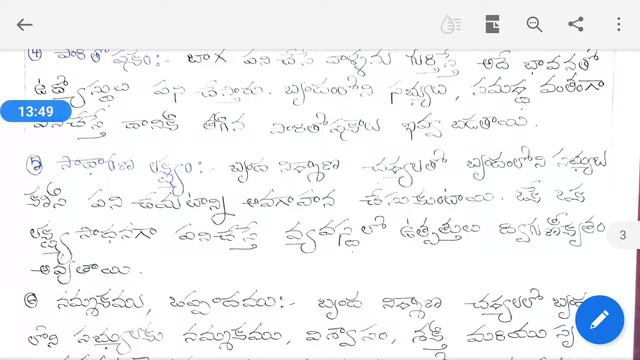 ④ పారితోషికం:- బాగ పని చేసే వాళ్ళను గుర్తిస్తే అదే భావనతో
ఉద్యోస్థులు పని చేస్తారు. బృందంలోని సభ్యులు, సమర్థ వంతంగా
పనిచేస్తే దానికి తగిన పారితోషకాలు ఇవ్వ బడతాయి.
13:49
⑤ సాధారణ లక్ష్యం:- బృంద నిర్మాణ చర్యలతో బృందంలోని సభ్యులు
కలిసి పని చేయటాన్ని అవగాహన చేసుకుంటాయి. ఒకే ఒక
లక్ష్య సాధనగా పనిచేస్తే వ్యవస్థలో ఉత్పత్తులు ద్విగుణీకృతం
3
అవ్యతాయి.
⑥ నమ్మకము, ఒప్పందము:- బృంద నిర్మాణ చర్యలలో
లోని సభ్యులకు నమ్మకము, విశ్వాసం, శక్తి మరియు